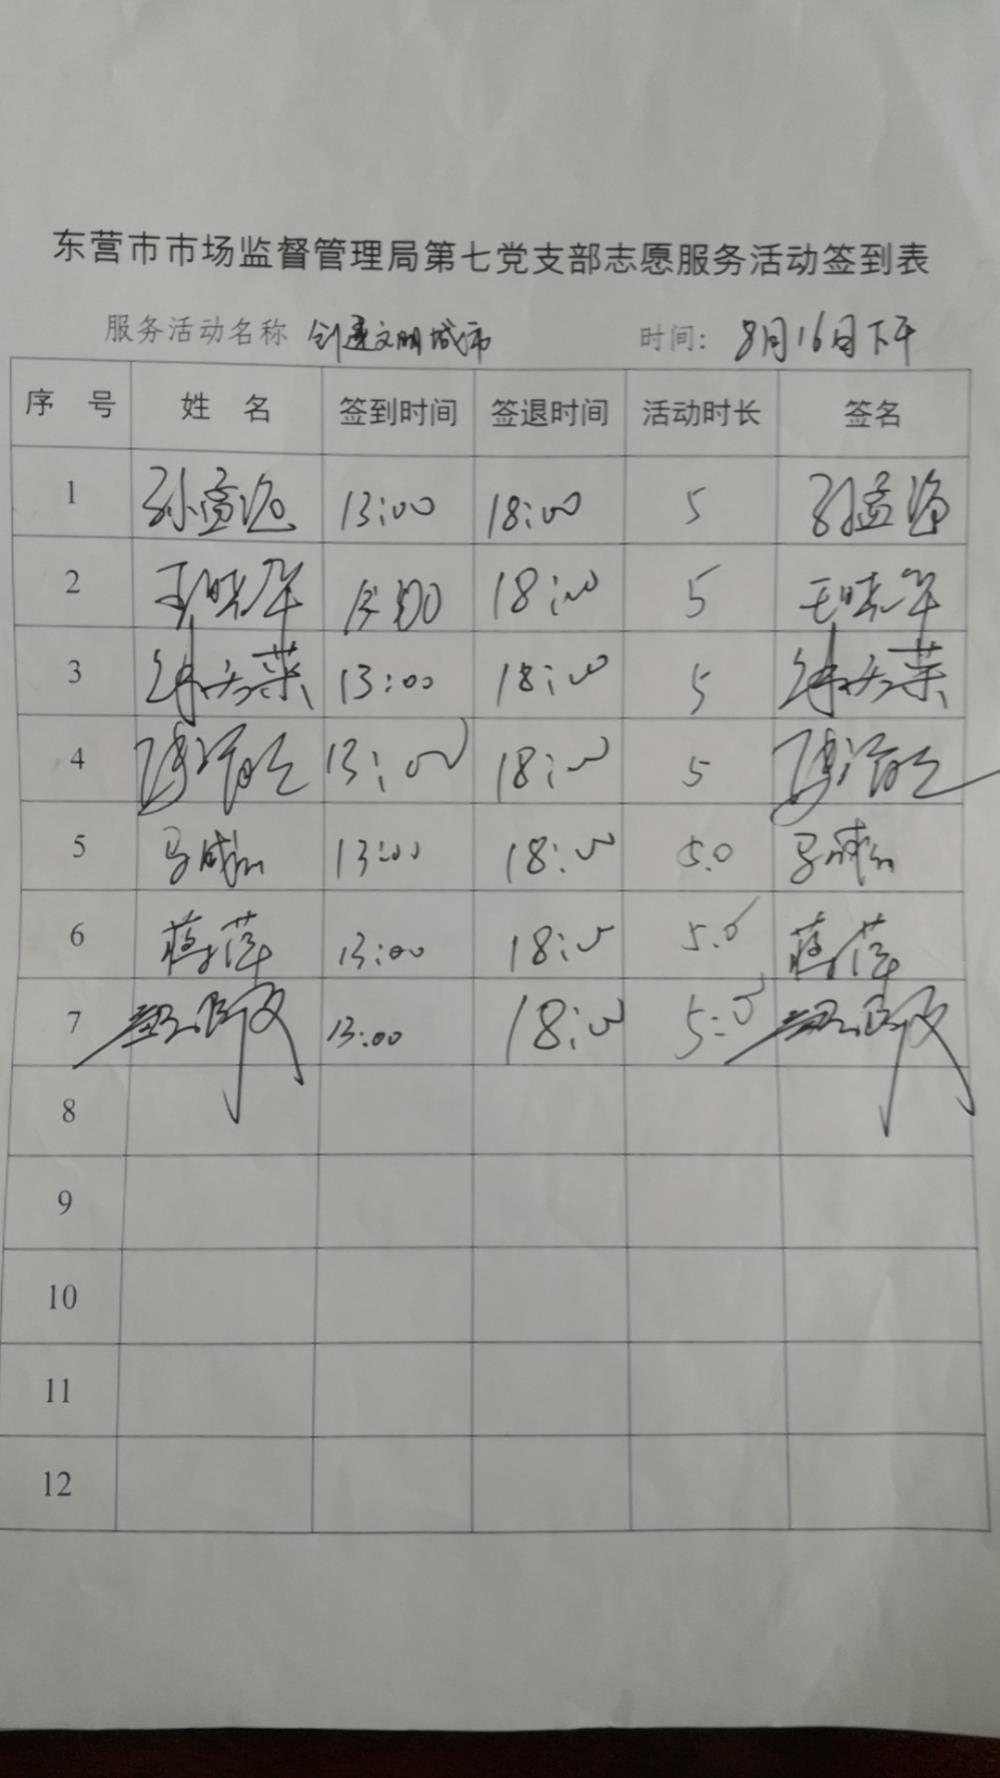 东营市市场监督管理局第七党支部志愿服务活动签到表
服务活动名称 创建文明城市 时间: 8月16日下午
序 号 姓 名 签到时间 签退时间 活动时长 签名
1 孙孟 13:00 18:00 5 孙孟
2 王晓军 18:00 5 王晓军
3 13:00 18:00 5
4 13:00 18:00 5
5 马成 13:00 18:00 5.0 马成
6 蒋萍 13:00 18:00 5.0 蒋萍
7 13:00 18:00 5.0
8
9
10
11
12